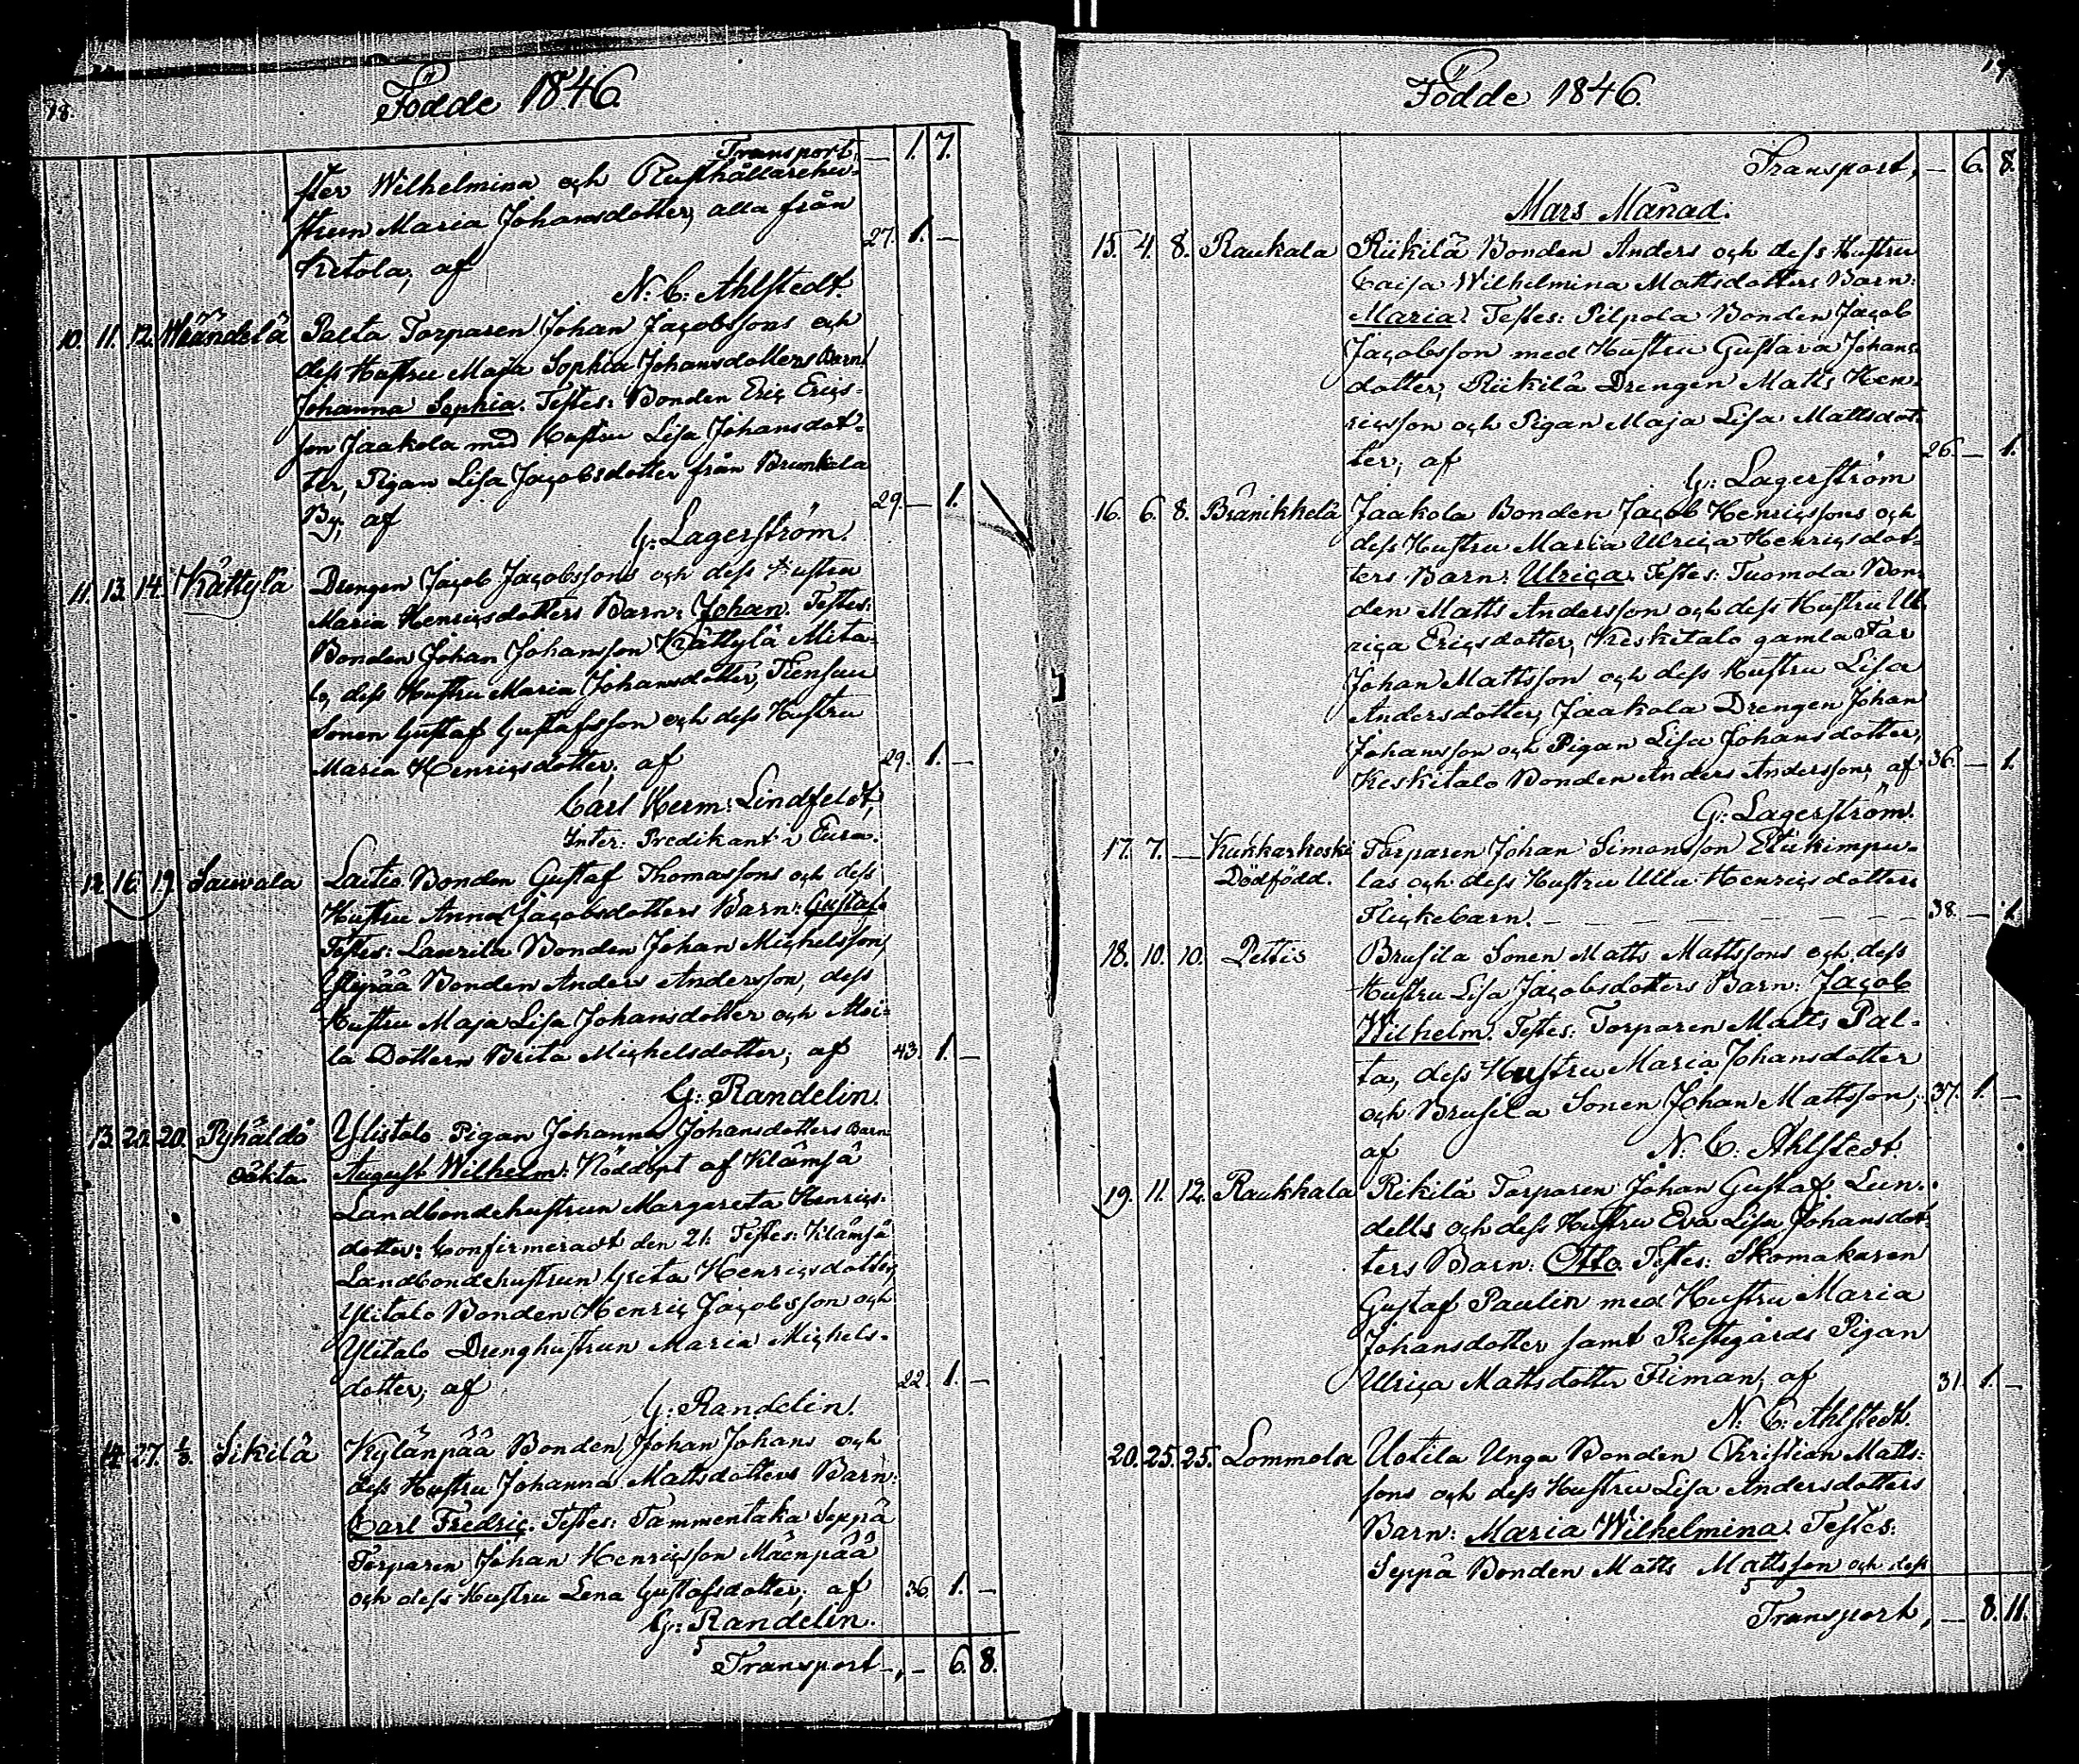 78.
Födde 1846.
Transport, — 1. 7.
ster Wilhelmina och Rusthållarehu-
strun Maria Johansdotter, alla från
Ketola, af 27. 1. —
N: C: Ahlstedt.
10. 11. 12. Palta Torparen Johan Jacobssons och
dess Hustru Maja Sophia Johansdotters Barn:
Johanna Sophia. Testes: Bonden Eric Erics-
son Jaakola med Hustru Lisa Johansdot-
ter, Pigan Lisa Jacobsdotter från
By, af 29. — 1.
G: Lagerström.
11. 13. 14. Kättylä Drengen Jacob Jacobssons och dess Hustru
Maria Henricsdotters Barn: Johan. Testes:
Bonden Johan Johansson Kättylä Mita-
lo, dess Hustru Maria Johansdotter,
Sonen Gustaf Gustafsson och dess Hustru
Maria Henricsdotter, af 29. 1. —
Carl Herm: Lindfeldt,
Inter: Predikant i Eura.
12. 16. 19. Sauvola Laitis Bonden Gustaf Thomassons och dess
Hustru Anna Jacobsdotters Barn: Gustaf.
Testes: Laurila Bonden Johan Michelsson,
Ylipää Bonden Anders Andersson, dess
Hustru Maja Lisa Johansdotter och Moi-
la Dottern Brita Michelsdotter, af 43. 1. —
G: Randelin.
13. 20. 20. Ylistalo Pigan Johanna Johansdotters Barn:
oäkta. August Wilhelm. Nöddöpt af Klämsä
Landbondehustrun Margareta Henrics-
dotter: Confirmeradt den 21. Testes: Klämsä
Landbondehustrun Greta Henricsdotter,
Ylitalo Bonden Henric Jacobsson och
Ylitalo Drenghustrun Maria Michels-
dotter, af 22. 1. —
G: Randelin.
14. 27. 1/3. Sikilä Kylänpää Bonden Johan Johans och
dess Hustru Johanna Mattsdotters Barn:
Carl Fredric. Testes: Tammentaka Seppä
Torparen Johan Henricsson Mäenpää
och dess Hustru Lena Gustafsdotter, af 36. 1. —
G: Randelin.
Transport —, — 6. 8.
Födde 1846.
Transport, — 6. 8.
Mars Månad.
15. 4. 8. Raukala Riikilä Bonden Anders och dess Hustru
Caisa Wilhelmina Mattsdotters Barn:
Maria. Testes: Pilpola Bonden Jacob
Jacobsson med Hustru Gustava Johans-
dotter, Riikilä Drengen Matts Hen-
ricsson och Pigan Maja Lisa Mattsdot-
ter, af 26. — 1.
G: Lagerström
16. 6. 8. Bränikkelä Jaakola Bonden Jacob Henricssons och
dess Hustru Maria Ulrica Henricsdot-
ters Barn: Ulrica. Testes: Tuomola Bon-
den Matts Andersson och dess Hustru Ul-
rica Ericsdotter, Keskitalo gamla Far
Johan Mattsson och dess Hustru Lisa
Andersdotter, Jaakola Drengen Johan
Johansson och Pigan Lisa Johansdotter,
Keskitalo Bonden Anders Andersson, af 36. — 1.
G: Lagerström.
17. 7. — Kukkarkoski Torparen Johan Simonsson
Dödfödd. las och dess Hustru Ulla Henricsdotters
Flickebarn. — — — — — 38. — 1.
18. 10. 10. Pettis Brusila Sonen Matts Mattssons och dess
Hustru Lisa Jacobsdotters Barn: Jacob
Wilhelm. Testes: Torparen Matts Pal-
ta, dess Hustru Maria Johansdotter
och Brusila Sonen Johan Mattsson, 37. 1. —
af N: C: Ahlstedt.
19. 11. 12. Raukkala Rikilä Torparen Johan Gustaf Lun-
dells och dess Hustru Eva Lisa Johansdot-
ters Barn: Otto. Testes: Skomakaren
Gustaf Paulin med Hustru Maria
Johansdotter samt Prestegårds Pigan
Ulrica Mattsdotter Fliman, af 31. 1. —
N: C: Ahlstedt.
20. 25. 25. Lommola Uotila Unga Bonden Christian Matts-
sons och dess Hustru Lisa Andersdotters
Barn: Maria Wilhelmina. Testes:
Seppä Bonden Matts Mattsson och dess
Transport, — 8. 11.